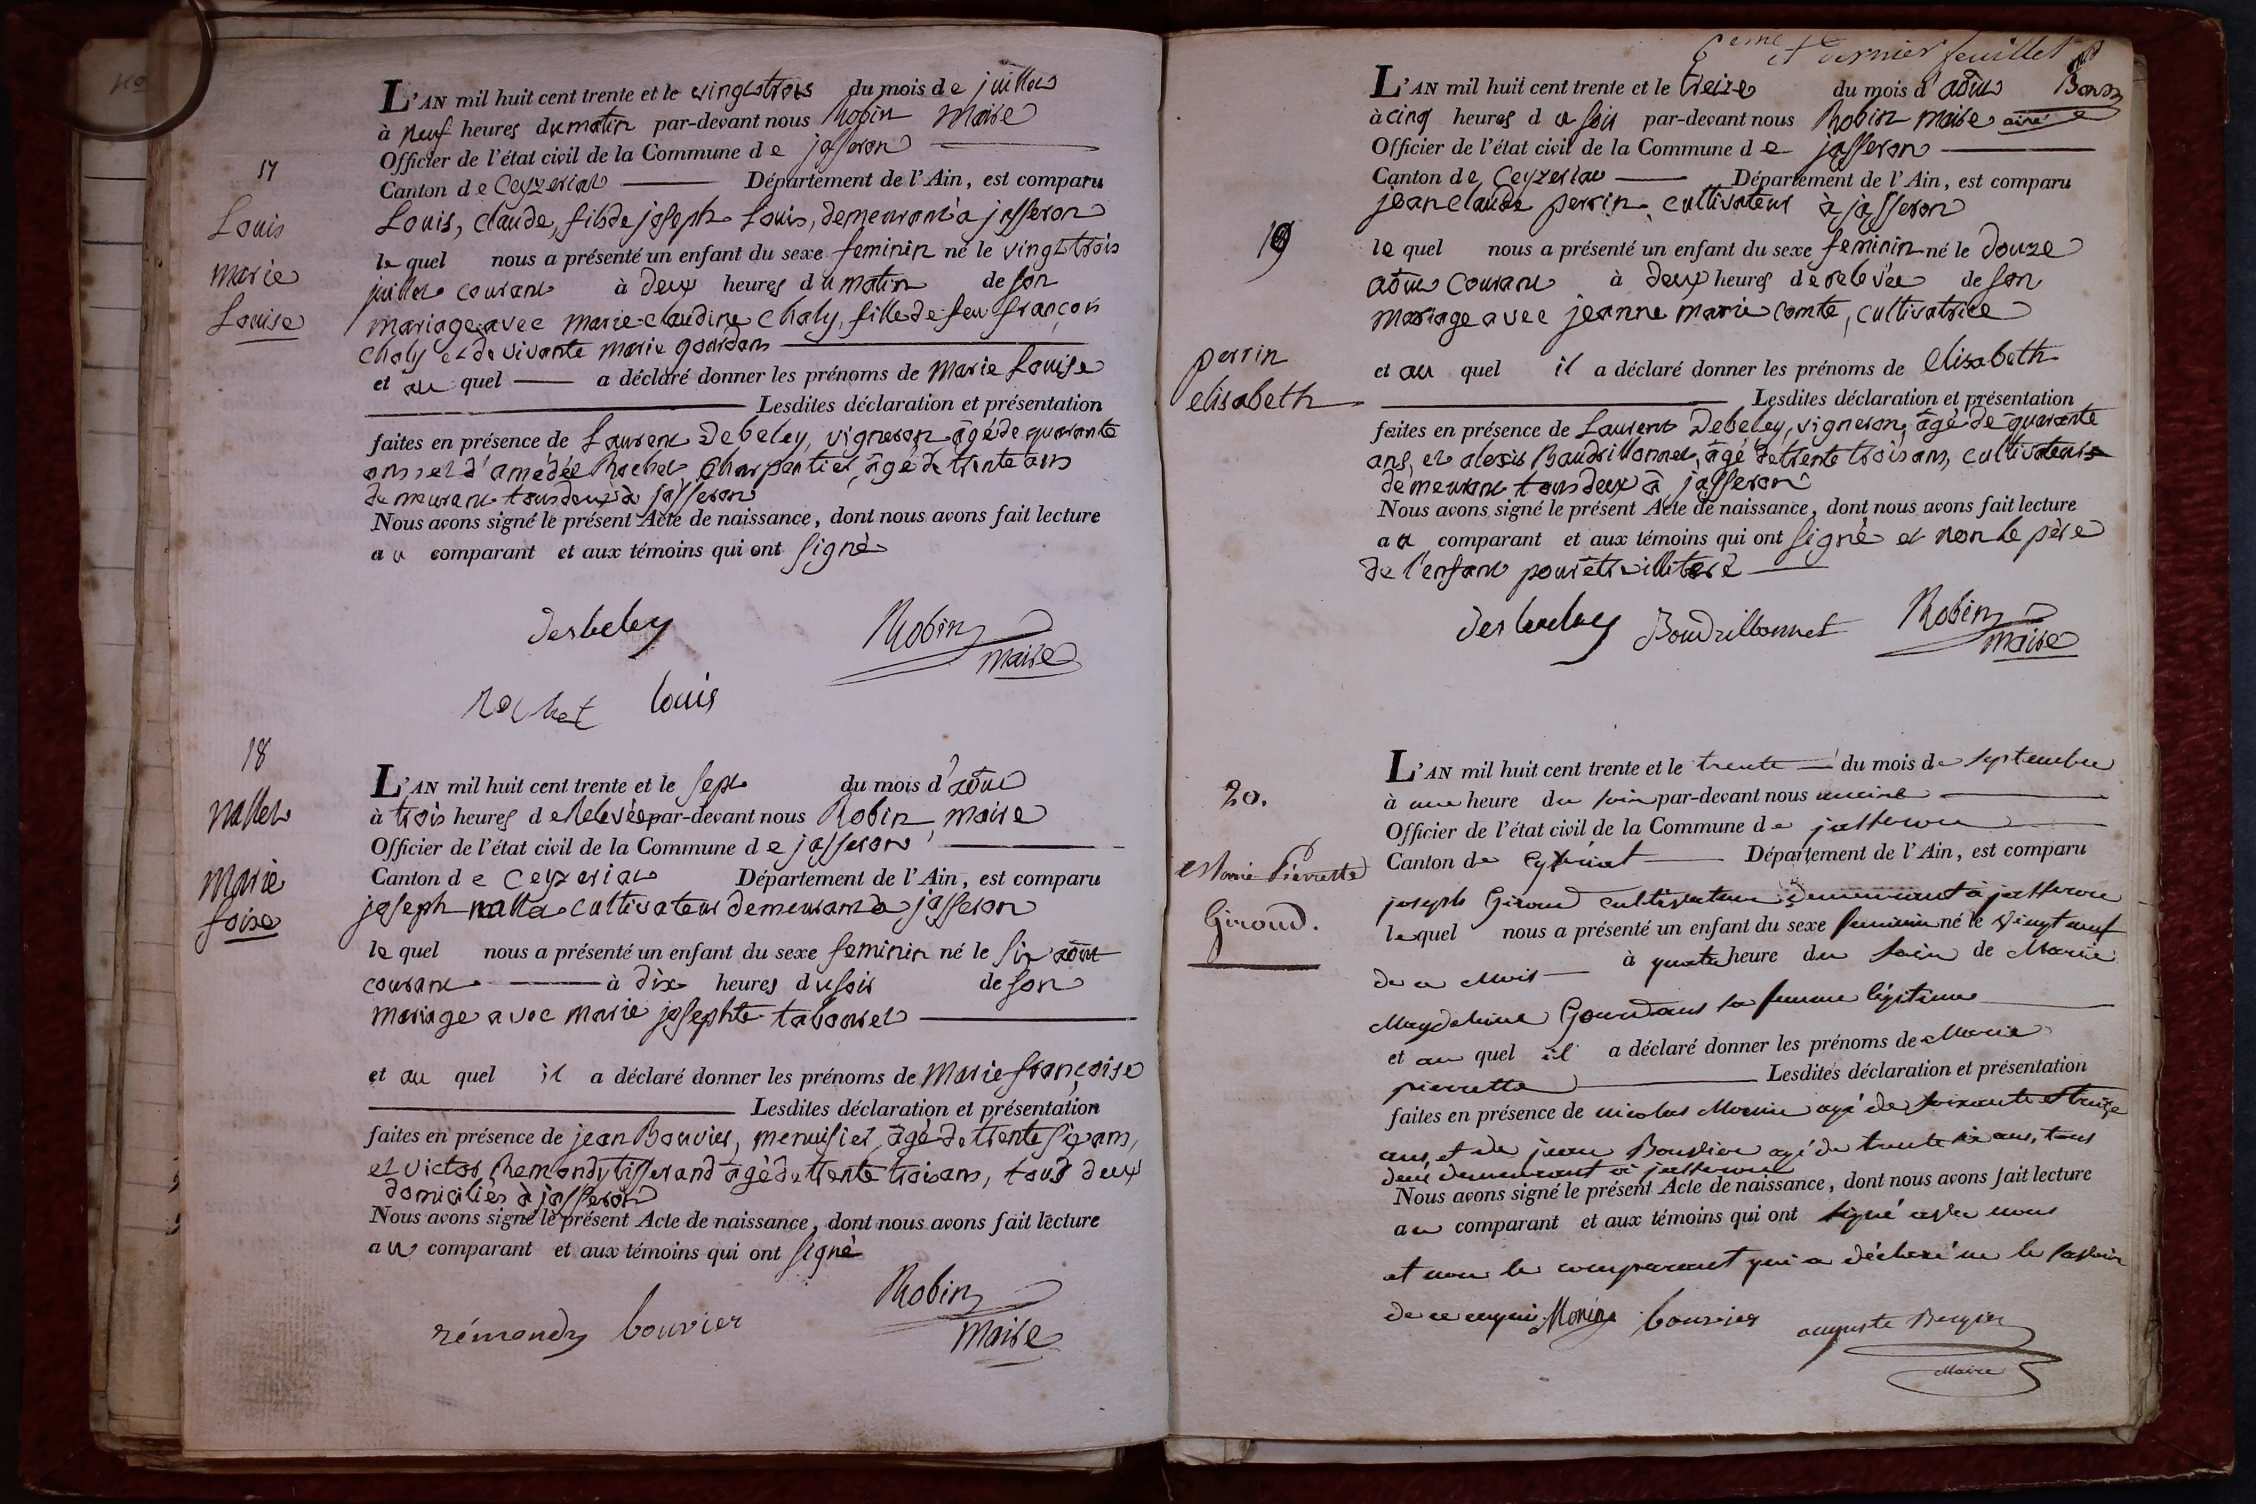 17
Louis
marie
Louise
L'AN mil huit cent trente et le vingt trois du mois de juillet
à neuf heures du matin par-devant nous Robin Maire
Officier de l'état civil de la Commune de jasseron
Canton de Ceyzeriat Département de l'Ain, est comparu
Louis, claude, fils de joseph Louis, demeurant à jasseron
le quel nous a présenté un enfant du sexe feminin né le vingt trois
juillet courant à deux heures du matin de son
mariage avec marie claudine Chaly, fille de feu françois
Chaly et de vivante marie gourdans
et au quel a déclaré donner les prénoms de marie Louise
Lesdites déclaration et présentation
faites en présence de Laurent Debeley, vigneron âgé de quarante
ans, et d'amédée Rochet, Charpentier, âgé de trente ans
demeurant tous deux à jasseron
Nous avons signé le présent Acte de naissance, dont nous avons fait lecture
au comparant et aux témoins qui ont signé
desbeley Robin
maire
rochet louis
18
nallet
Marie
foise
L'AN mil huit cent trente et le sept du mois d'aôut
à trois heures de Relevée par-devant nous Robin, maire
Officier de l'état civil de la Commune de jasseron
Canton de Ceyzeriat Département de l'Ain, est comparu
joseph nallet cultivateur demeurant à jasseron
le quel nous a présenté un enfant du sexe feminin né le six aôut
courant à dix heures du soir de son
mariage avec marie josephte tabouret
et au quel il a déclaré donner les prénoms de Marie françoise
Lesdites déclaration et présentation
faites en présence de jean Bouvier, menuisier, âgé de trente six ans,
et victor Remondy tisserand âgé de trente trois ans, tous deux
domiciliés à jasseron
Nous avons signé le présent Acte de naissance, dont nous avons fait lecture
au comparant et aux témoins qui ont signé
rémondy bouvier Robin
maire
6eme et dernier feuillet
19
perrin
elisabeth
L'AN mil huit cent trente et le treize du mois d'aôut
à cinq heures du soir par-devant nous Robin maire
Officier de l'état civil de la Commune de jasseron
Canton de Ceyzeriat Département de l'Ain, est comparu
jean claude perrin, cultivateur à jasseron
le quel nous a présenté un enfant du sexe feminin né le douze
aôut courant à deux heures de relevée de son
mariage avec jeanne marie comte, cultivatrice
et au quel il a déclaré donner les prénoms de elisabeth
Lesdites déclaration et présentation
faites en présence de Laurent Debeley, vigneron, âgé de quarante
ans, et alexis Baudrillonnet, âgé de trente trois ans, cultivateurs
demeurant tous deux à jasseron
Nous avons signé le présent Acte de naissance, dont nous avons fait lecture
au comparant et aux témoins qui ont signé et non le père
de l'enfant pour être illiteré
desbeley Boudrillonnet Robin
maire
20.
Marie Pierrette
Giroud.
L'AN mil huit cent trente et le trente du mois de septembre
à une heure du soir par-devant nous maire
Officier de l'état civil de la Commune de jasseron
Canton de Département de l'Ain, est comparu
joseph Giroud cultivateur demeurant à jasseron
le quel nous a présenté un enfant du sexe feminin né le vingt neuf
de ce Mois à quatre heure du soir de Marie
Magdeleine Gourdans sa femme légitime
et au quel il a déclaré donner les prénoms de Marie
pierrette Lesdites déclaration et présentation
faites en présence de nicolas Morin agé de soixante et treize
ans, et de jean Bouvier agé de trente six ans, tous
deux demeurant à jasseron
Nous avons signé le présent Acte de naissance, dont nous avons fait lecture
au comparant et aux témoins qui ont signé avec nous
et non le comparant qui a déclaré ne le savoir
de ce enquis Morin bouvier auguste
Maire